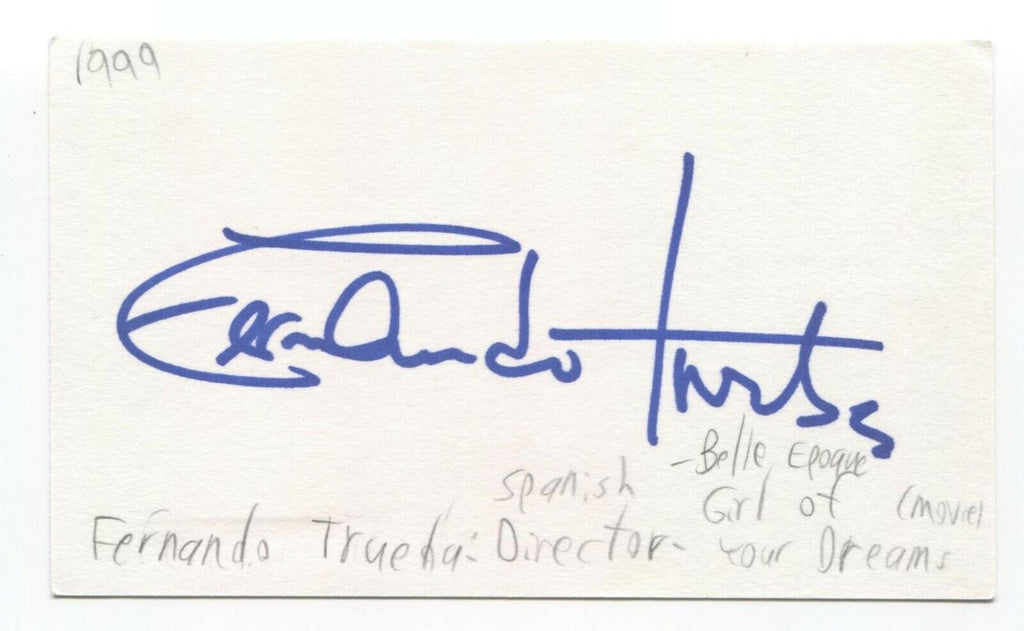 1999
Fernando Trueba
- Belle Epoque
spanish Girl of (movie)
Fernando Trueba: Director- Your Dreams